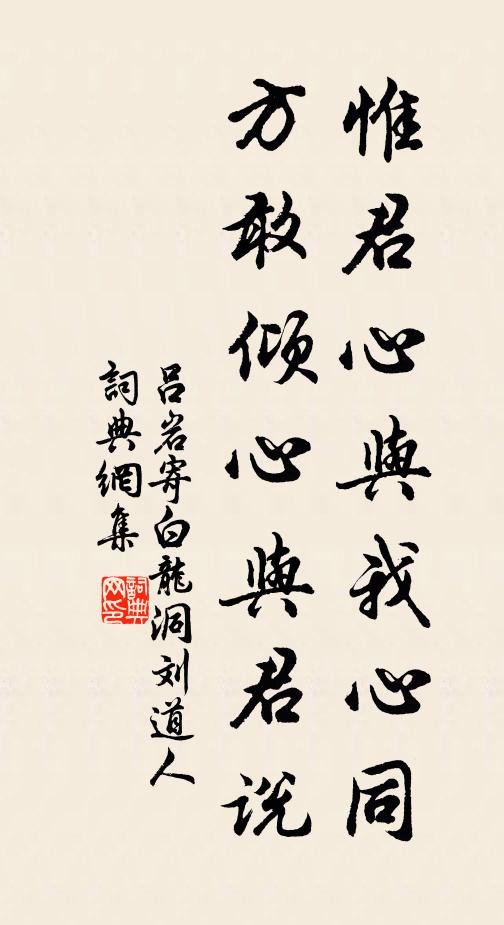 惟君心與我心同
方敢傾心與君説
吕岩寄白龍洞刘道人
詞典網集
詞典
网印